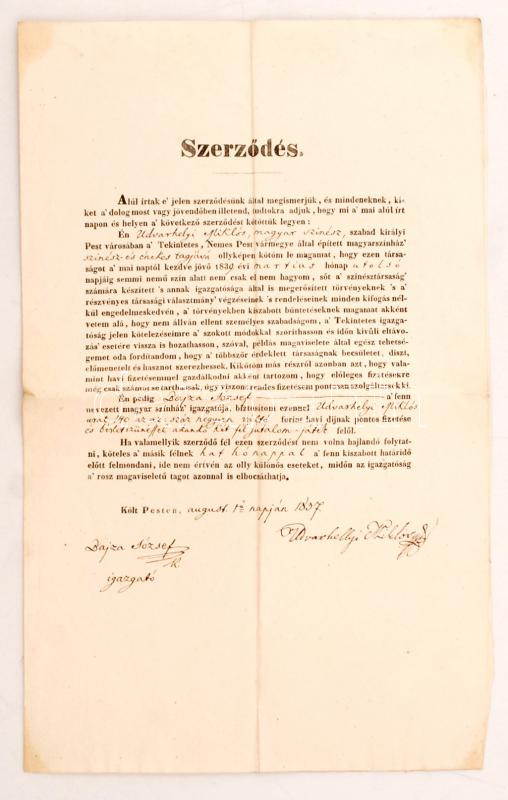 Szerződés.
Alúl írtak e' jelen szerződésünk által megismerjük, és mindeneknek, ki-
ket a' dolog most vagy jövendőben illetend, tudtokra adjuk, hogy mi a' mai alúl írt
napon és helyen a' következő szerződést kötöttük legyen:
Én Udvarhelyi Miklós, magyar színész, szabad királyi
Pest városában a' Tekintetes, Nemes Pest vármegye által épített magyarszínház'
színész- és énekes tagjává ollyképen kötöm le magamat, hogy ezen társa-
ságot a' mai naptol kezdve jövő 1839 évi martius hónap utolsó
napjáig semmi némü szín alatt nem csak el nem hagyom, sőt a' színésztársaság'
számára készített 's annak igazgatósága által is megerősített törvényeknek 's a'
részvényes társasági választmány' végzéseinek 's rendeléseinek minden kifogás nél-
kül engedelmeskedvén, a' törvényekben kiszabott büntetéseknek magamat akként
vetem alá, hogy nem állván ellent személyes szabadságom, a' Tekintetes igazga-
tóság jelen kötelezéseimre a' szokott módokkal szoríthasson és időn kívüli eltávo-
zás' esetére vissza is hozathasson, szóval, példás magaviselete által egész tehetsé-
gemet oda fordítandom, hogy a' többször érdeklett társaságnak becsületet, díszt,
előmenetelt és hasznot szerezhessek. Kikötöm más részről azonban azt, hogy vala-
mint havi fizetésemmel gazdálkodni akként tartozom, hogy előleges fizetésekre
még csak számot se tarthassak, úgy viszont rendes fizetésem pontosan szolgáltassék ki.
Én pedig Bajza József a' fenn
nevezett magyar színház' igazgatója, biztosítom ezennel Udvarhelyi Miklós
urat 140 az az: száz negyven váltó forint havi díjnak pontos fizetése
és két fél jutalom-játék felől.
Ha valamellyik szerződő fél ezen szerződést nem volna hajlandó folytat-
ni, köteles a' másik félnek hat hónappal a' fenn kiszabott határidő
előtt felmondani, ide nem értvén az olly különös eseteket, midőn az igazgatóság
a' rosz magaviseletű tagot azonnal is elbocsáthatja.
Költ Pesten, august. 1ső napján 1837
Udvarhellyi Miklós
Bajza József
igazgató